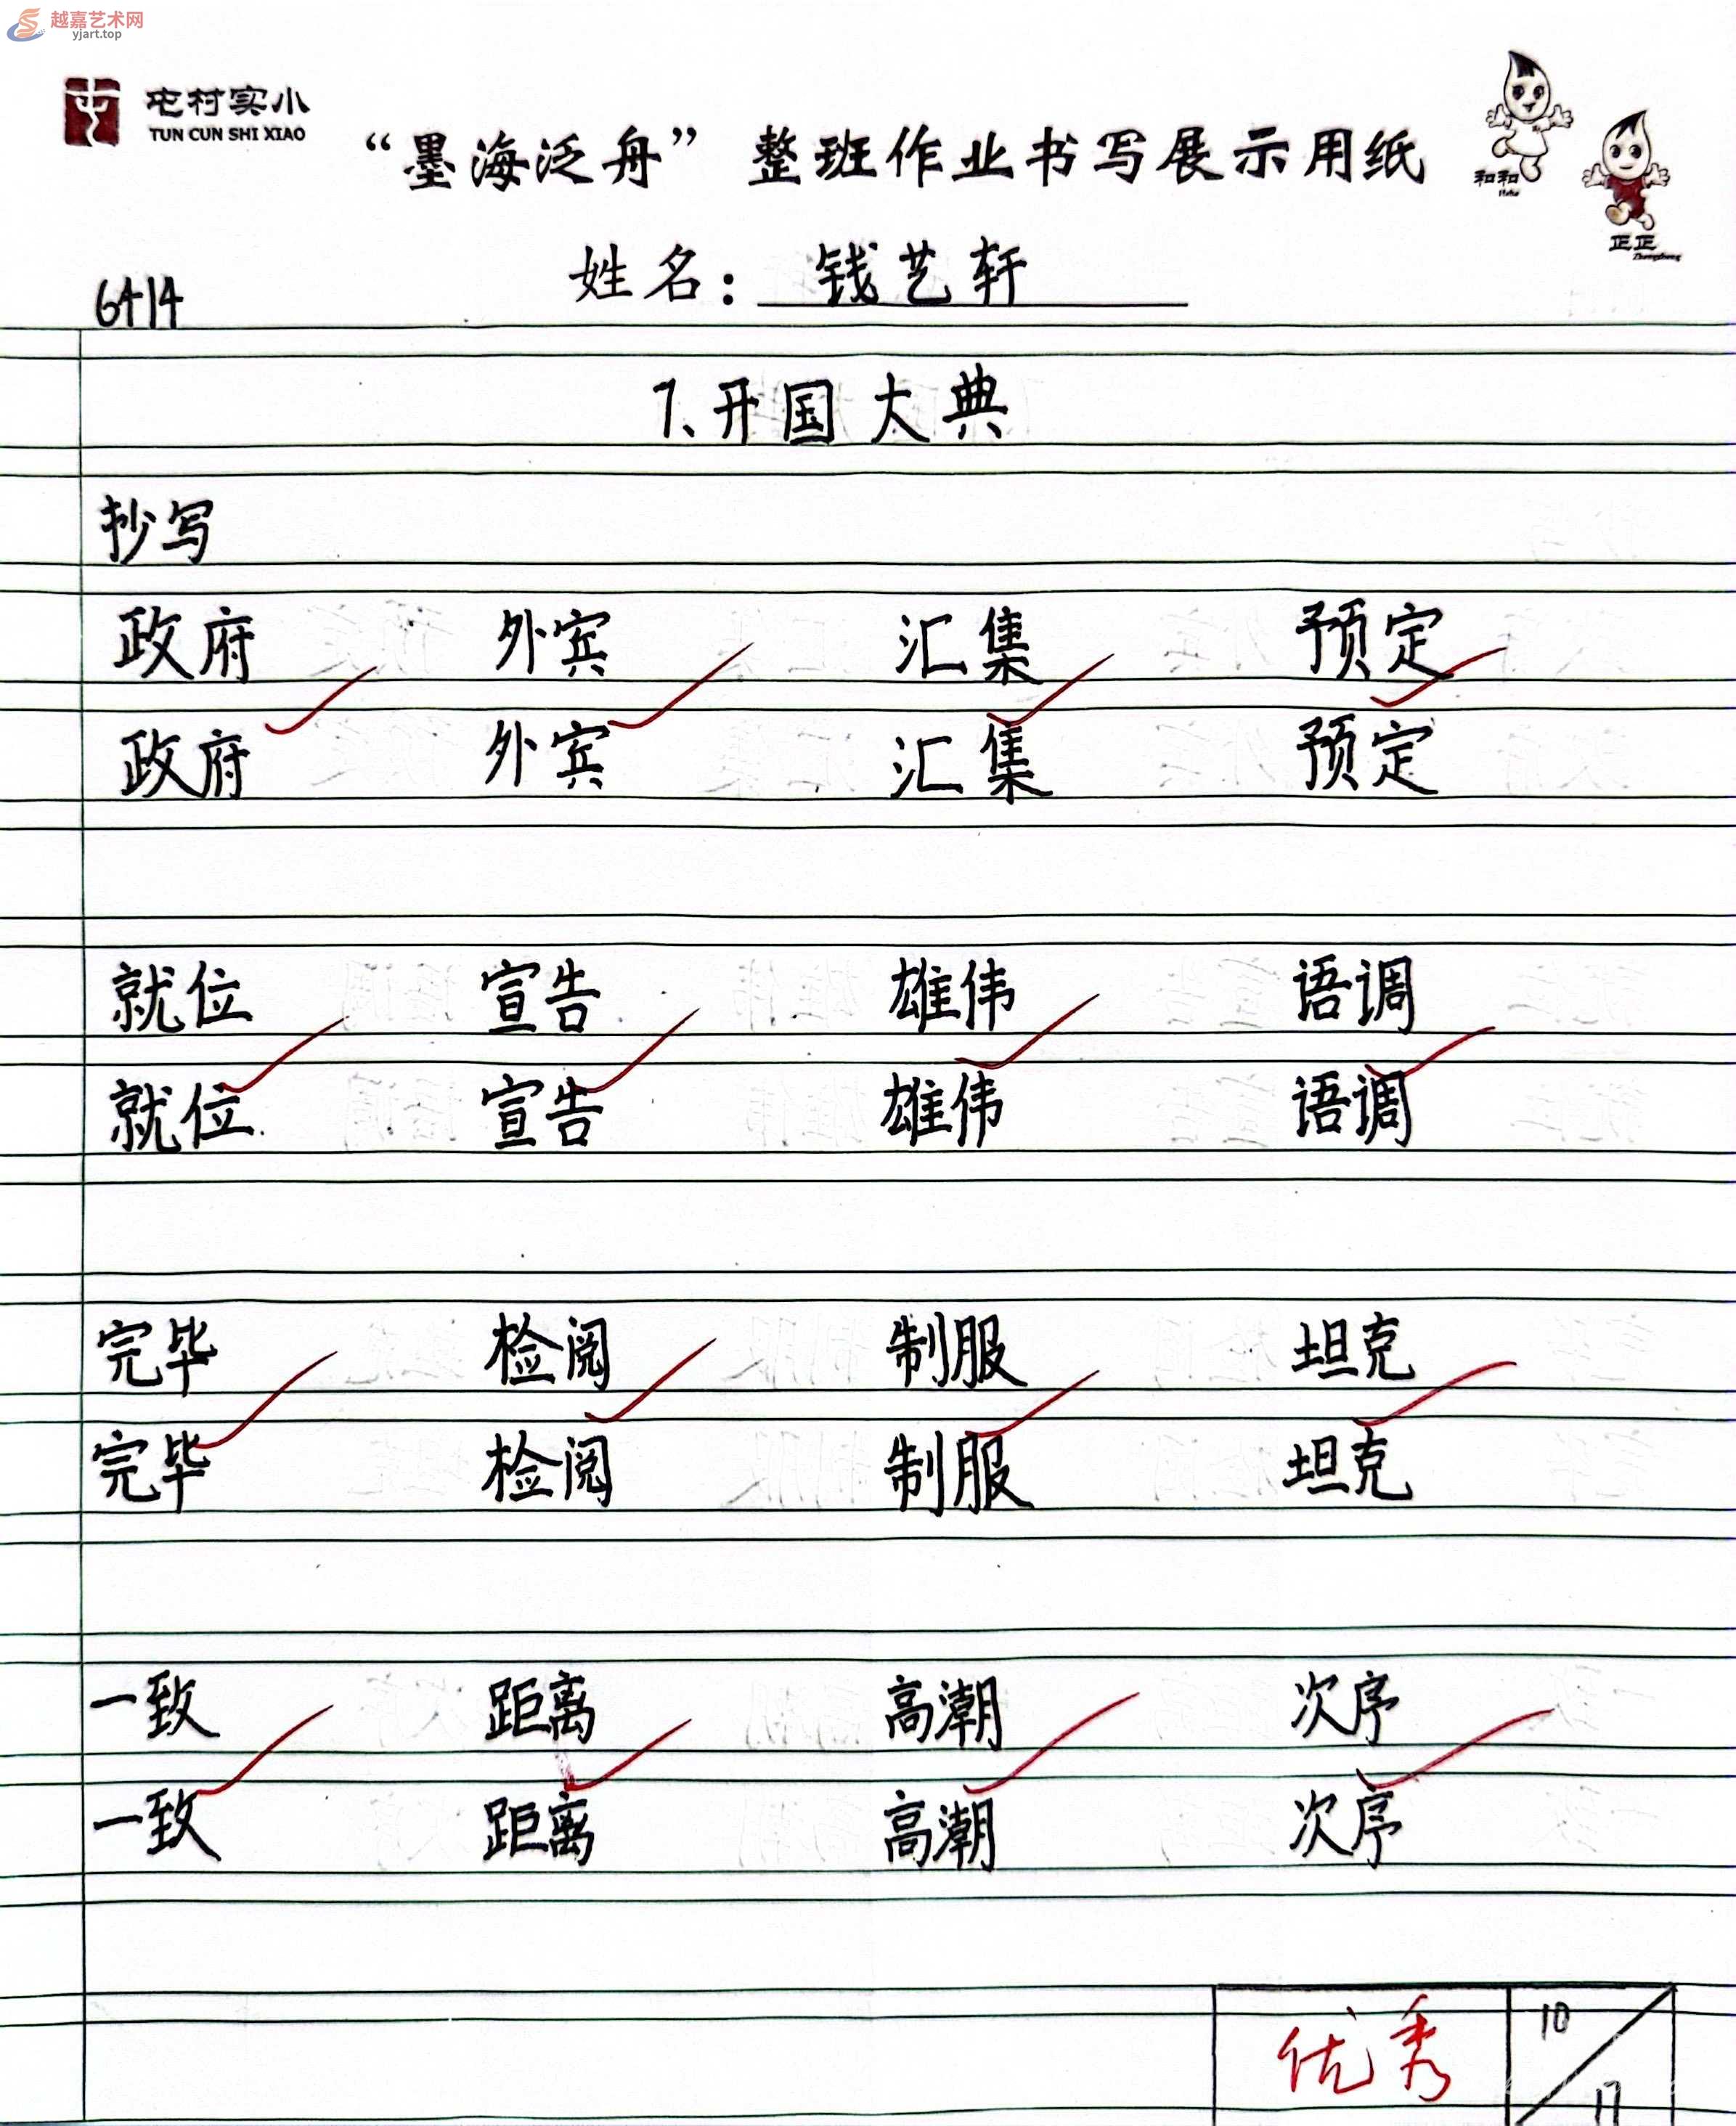 越嘉艺术网
yjart.top
屯村实小
TUN CUN SHI XIAO
“墨海泛舟”整班作业书写展示用纸
和和
Hehe
正正
Zhengzheng
姓名：钱艺轩
6414
7、开国大典
抄写
政府 外宾 汇集 预定
政府 外宾 汇集 预定
就位 宣告 雄伟 语调
就位 宣告 雄伟 语调
完毕 检阅 制服 坦克
完毕 检阅 制服 坦克
一致 距离 高潮 次序
一致 距离 高潮 次序
优秀 10
17